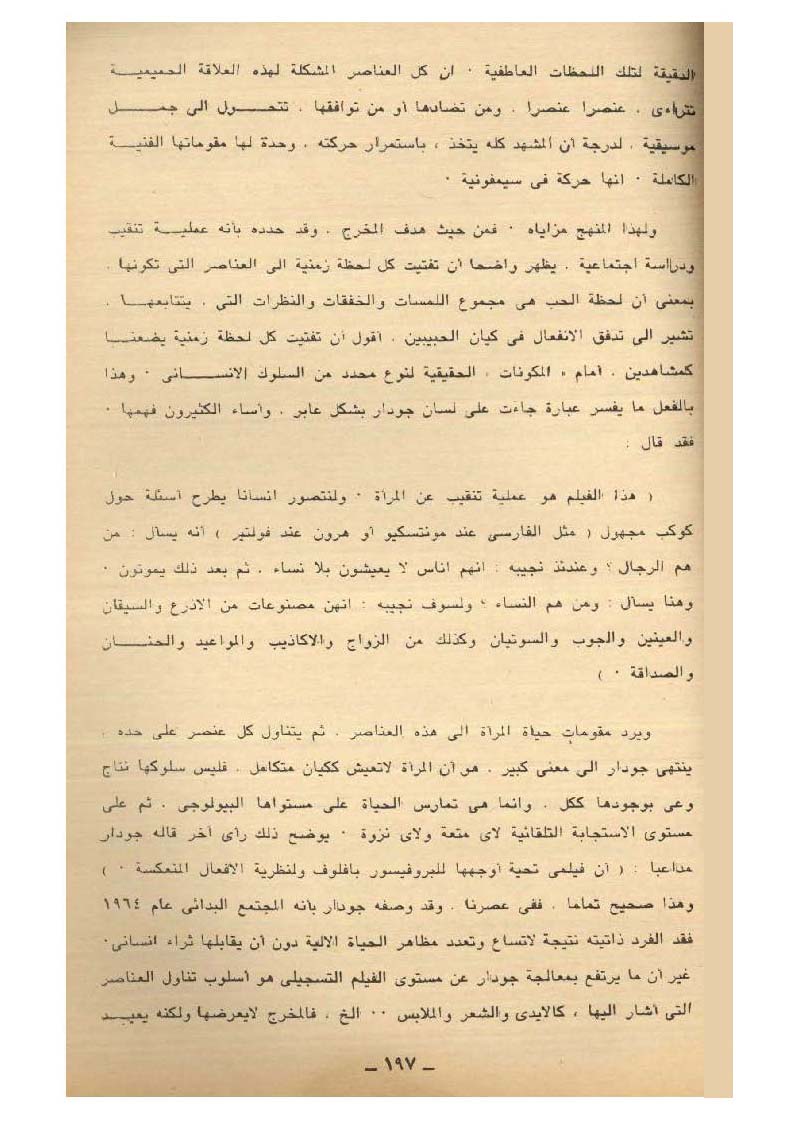 الدقيقة لتلك اللحظات العاطفية ٠ ان كل العناصر المشكلة لهذه العلاقة الحميمية
تتراءى ، عنصرا عنصرا ، ومن تضادها أو من توافقها ، تتحول الى جمل
موسيقية ، لدرجة أن المشهد كله يتخذ ، باستمرار حركته ، وحدة لها مقوماتها الفنية
الكاملة ٠ انها حركة فى سيمفونية ٠
ولهذا المنهج مزاياه ٠ فمن حيث هدف المخرج ، وقد حدده بأنه عملية تنقيب
ودراسة اجتماعية ، يظهر واضحا أن تفتيت كل لحظة زمنية الى العناصر التى تكونها ،
بمعنى أن لحظة الحب هى مجموع اللمسات والخفقات والنظرات التى ، يتتابعها ،
تشير الى تدفق الانفعال فى كيان الحبيبين ، أقول أن تفتيت كل لحظة زمنية يضعنا
كمشاهدين ، أمام « المكونات » الحقيقية لنوع محدد من السلوك الانسانى ٠ وهذا
بالفعل ما يفسر عبارة جاءت على لسان جودار بشكل عابر ، وأساء الكثيرون فهمها ٠
فقد قال :
( هذا الفيلم هو عملية تنقيب عن المرأة ٠ ولنتصور انسانا يطرح أسئلة حول
كوكب مجهول ( مثل الفارسى عند مونتسكيو أو هرون عند فولتير ) أنه يسأل : من
هم الرجال ؟ وعندئذ نجيبه : انهم اناس لا يعيشون بلا نساء ، ثم بعد ذلك يموتون ٠
وهنا يسأل : ومن هم النساء ؟ ولسوف نجيبه : انهن مصنوعات من الاذرع والسيقان
والعينين والجوب والسوتيان وكذلك من الزواج والاكاذيب والمواعيد والحنان
والصداقة ٠ )
ويرد مقومات حياة المرأة الى هذه العناصر ، ثم يتناول كل عنصر على حده ،
ينتهى جودار الى معنى كبير ، هو أن المرأة لاتعيش ككيان متكامل ، فليس سلوكها نتاج
وعى بوجودها ككل ، وانما هى تمارس الحياة على مستواها البيولوجى ، ثم على
مستوى الاستجابة التلقائية لاى متعة ولاى نزوة ٠ يوضح ذلك رأى آخر قاله جودار
مداعبا : ( أن فيلمى تحية أوجهها للبروفيسور بافلوف ولنظرية الافعال المنعكسة ٠ )
وهذا صحيح تماما ، ففى عصرنا ، وقد وصفه جودار بأنه المجتمع البدائى عام ١٩٦٤
فقد الفرد ذاتيته نتيجة لاتساع وتعدد مظاهر الحياة الالية دون أن يقابلها ثراء انسانى٠
غير أن ما يرتفع بمعالجة جودار عن مستوى الفيلم التسجيلى هو أسلوب تناول العناصر
التى أشار اليها ، كالايدى والشعر والملابس ٠٠ الخ ، فالمخرج لايعرضها ولكنه يعيد
ــ ١٩٧ ــ